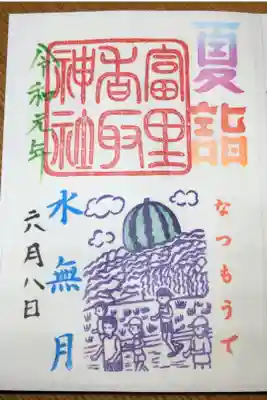 夏詣
なつもうで
富里
香取
神社
令和元年
水無月
六月八日